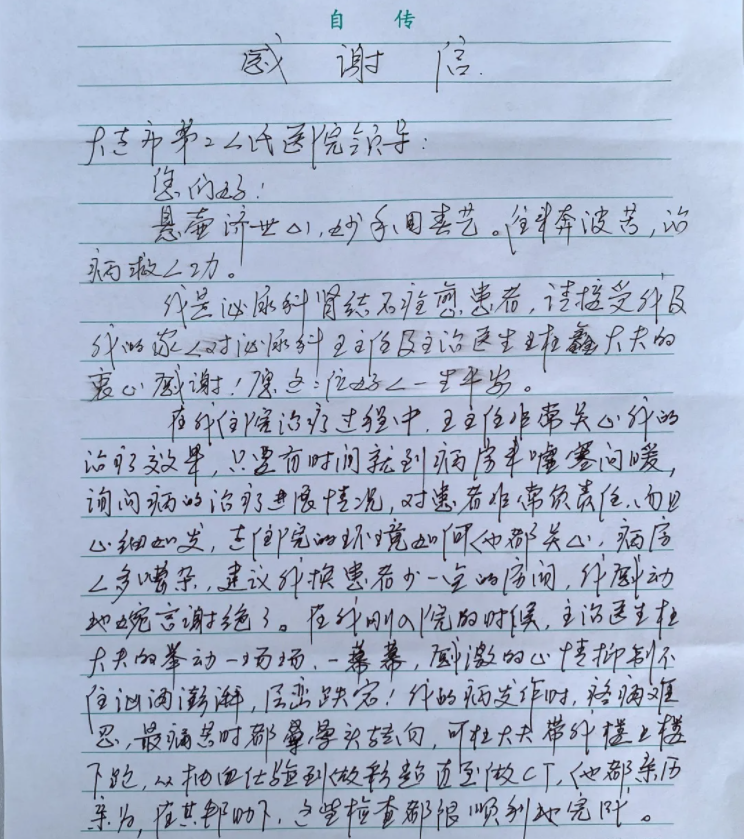 自 传
感 谢 信.
大连市第二人民医院领导:
您们好!
悬壶济世心,妙手用春艺。往来奔波苦,治
病救人功。
我是泌尿科肾结石痊愈患者,请接受我及
我的家人对泌尿科王主任及主治医生杜鑫大夫的
衷心感谢!愿这二位好人一生平安。
在我住院治疗过程中,王主任非常关心我的
治疗效果,只要有时间就到病房来嘘寒问暖,
询问病的治疗进展情况,对患者非常负责任,而且
心细如发,连住院的环境如何他都关心,病房
人多嘈杂,建议我换患者少一些的房间,我感动
地婉言谢绝了。在我刚入院的时候,主治医生杜
大夫的举动一场场,一幕幕,感激的心情抑制不
住汹涌澎湃,层峦跌宕!我的病发作时,疼痛难
忍,最痛苦时都晕头转向,可杜大夫带我楼上楼
下跑,从抽血化验到做彩超直至做CT,他都亲历
亲为,在其帮助下,这些检查都很顺利地完成。